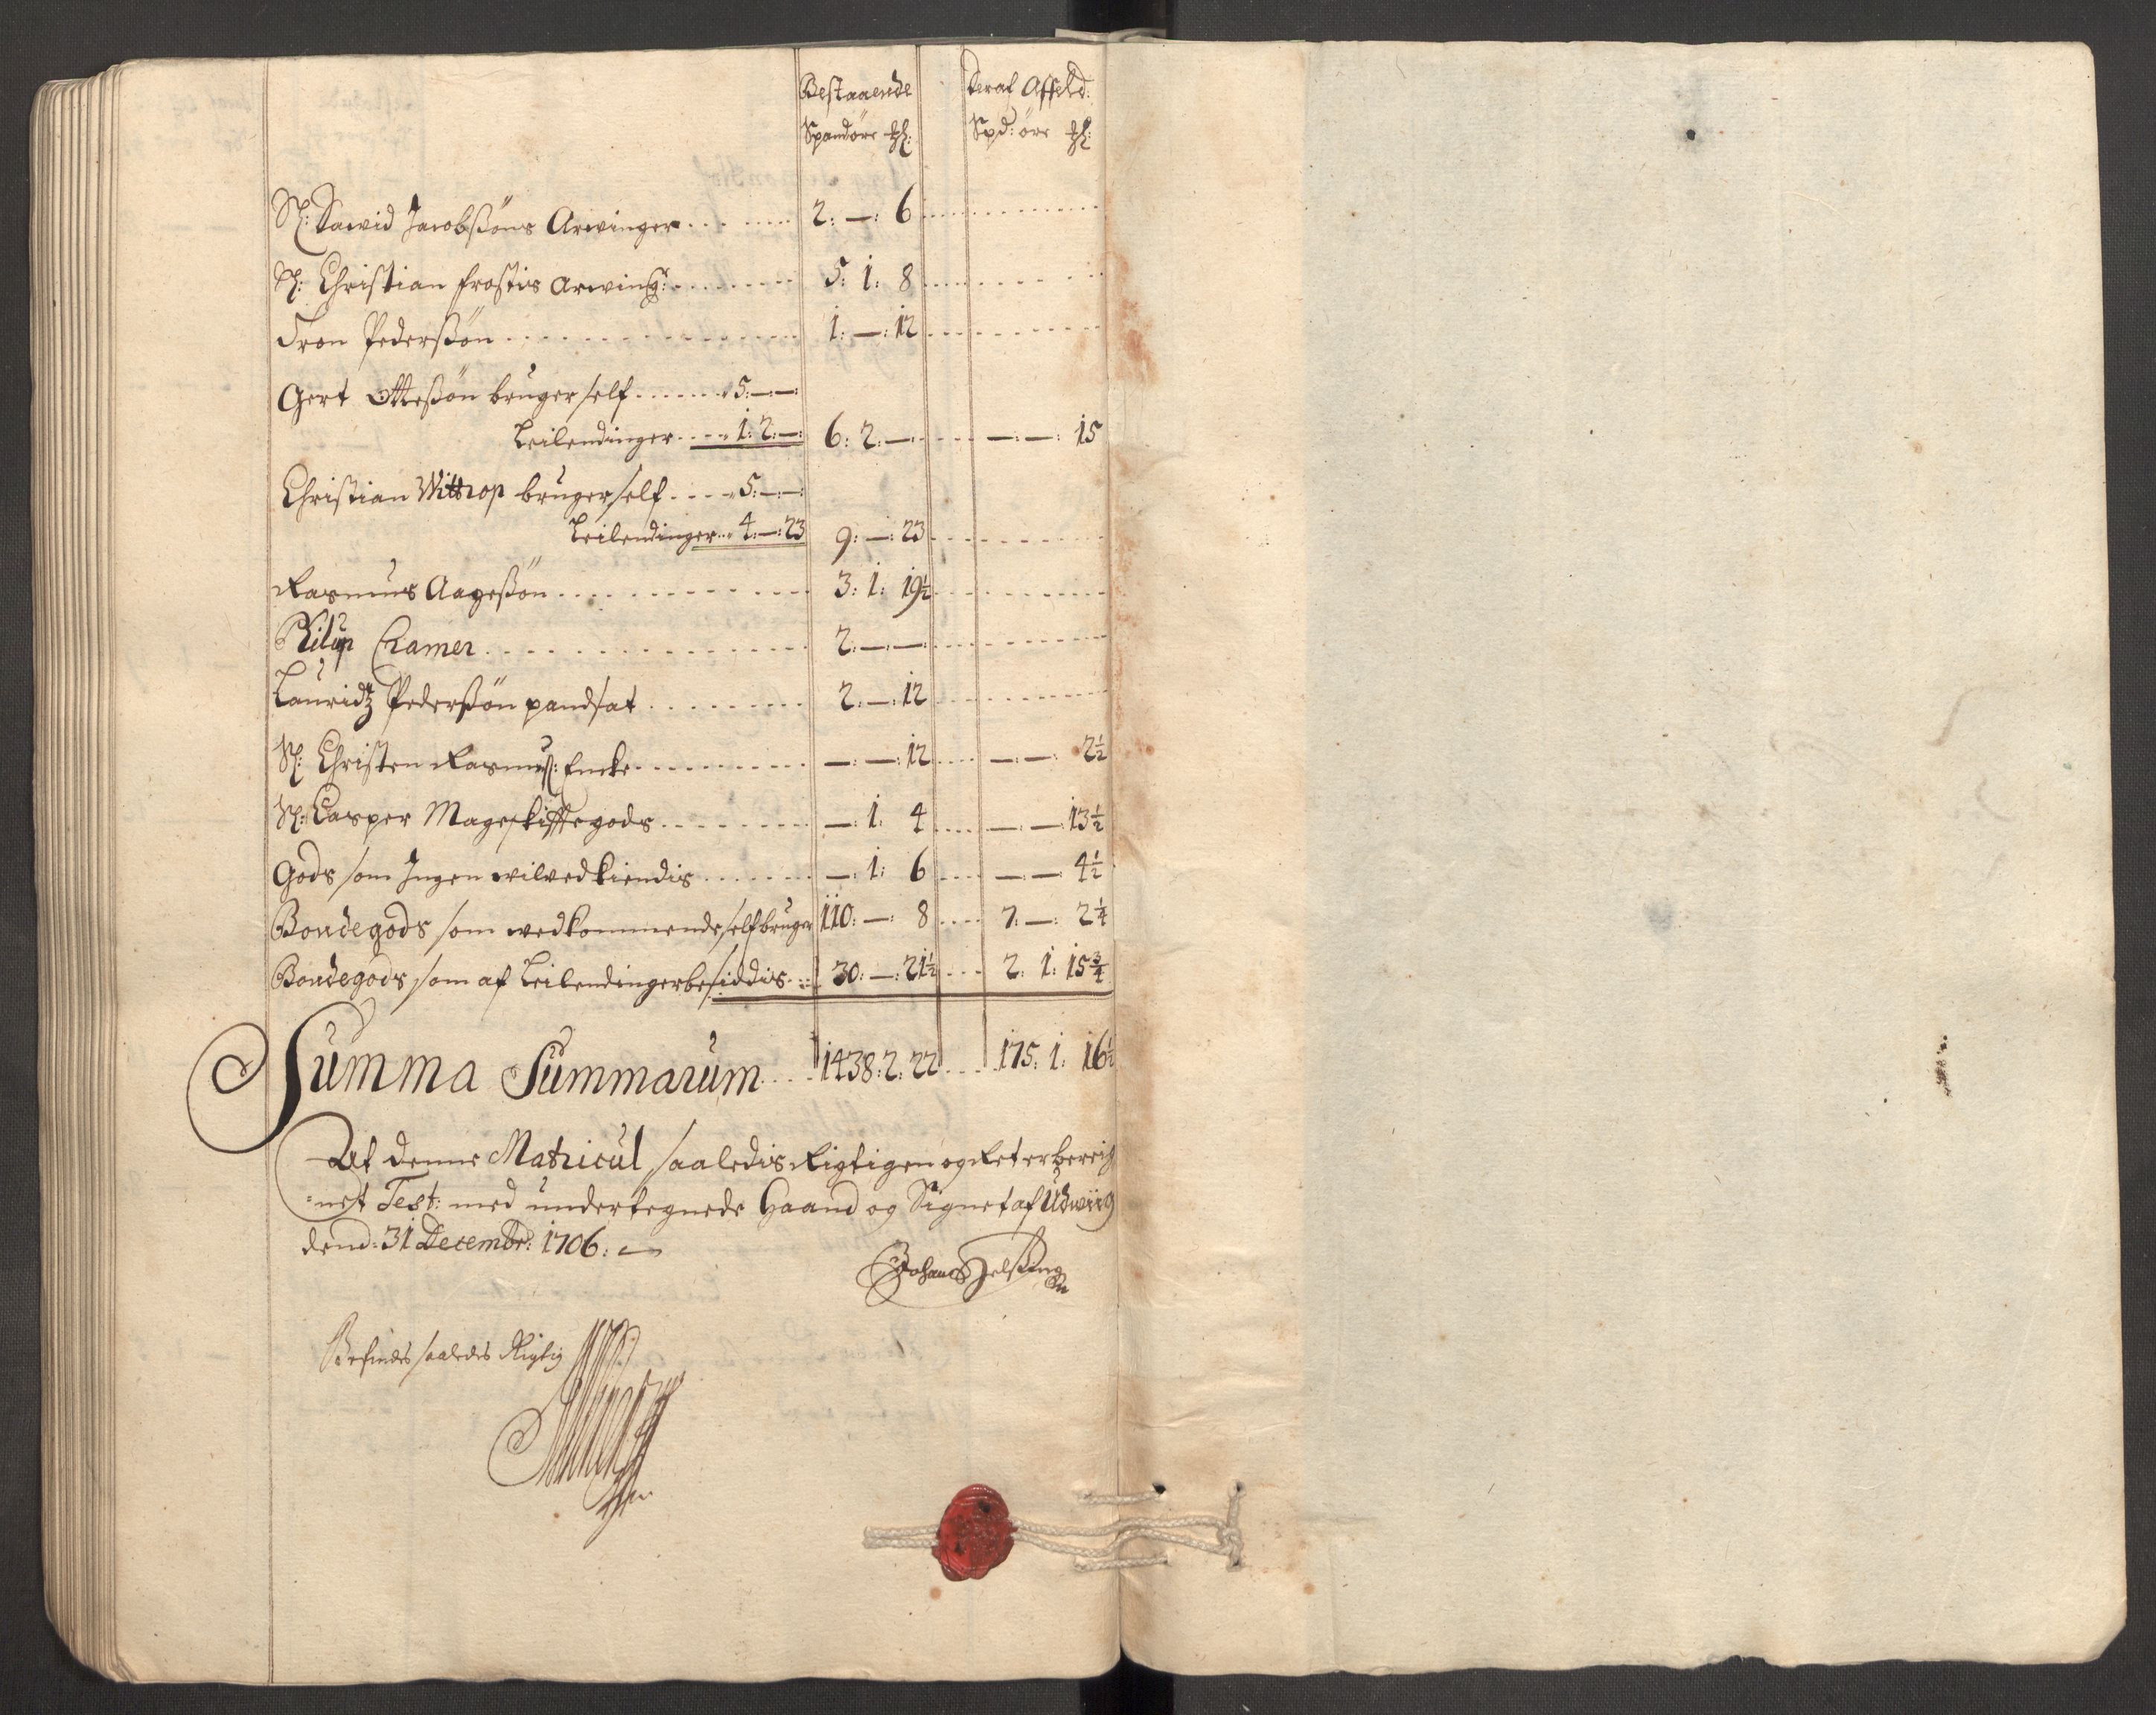 Bestaaende Deraf Affeld:
Spand öre Spd: öre
Sl: Dawid Jacobßöns Arwinger 2: —: 6
Sl: Christian frostis Arwing: 5: 1: 8
Tron Pederßön 1: —: 12
Gert Otteßön bruger self 5: —: —:
Leilendinger 1: 2: —: 6: 2: —: —: —: 15
Christian Wittrop bruger self 5: —: —:
Leilendinger 4: —: 23 9: —: 23
Rasmus Aageßön 3: 1: 19½
Philip Cramer 2: —: —:
Lauridtz Pederßön pandsat 2: —: 12
Sl: Christen Rasmuß: Encke —: —: 12 —: —: 2½
Sl: Casper Mageskifftegods —: 1: 4 —: —: 13½
Gods som Ingen wil wedkiendis —: 1: 6 —: —: 4½
Bondegods som wedkommende self bruger 110: —: 8 7: —: 2¼
Bondegods som af Leilendinger besiddis 30: —: 21½ 2: 1: 15¾
Summa Summarum 1438: 2: 22 175: 1: 16½
At denne Matricul saaledis Rigtigen og Ret er bereig
=net Test: med undertegnede Haand og Signet af Udwiig
dend: 31 Decembr: 1706:
Befindes saaledes Rigtig